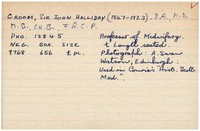 CROOM, SIR JOHN HALLIDAY (1847-1923). B.A., M.D.
M.D., CH.B., F.R.C.P.
PHO. 12845 Professor of Midwifery.
NEG. BOX. SIZE ¾ Length seated.
9768 656 ½ pl. Photograph: A. Swan
Watson, Edinburgh.
Used in Comrie's Hist. Scott.
Med."